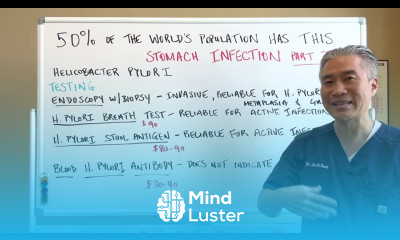 50% OF THE WORLD'S POPULATION HAS THIS
STOMACH INFECTION PART
HELICOBACTER PYLORI
TESTING
ENDOSCOPY W/BIOPSY - INVASIVE, RELIABLE FOR H. PYLORI
METAPLASIA &
H. PYLORI BREATH TEST - RELIABLE FOR ACTIVE INFECTION
$90
H. PYLORI STOOL ANTIGEN - RELIABLE FOR ACTIVE
$80-90
BLOOD H. PYLORI ANTIBODY - DOES NOT INDICATE
$30-40
Mind
Luster